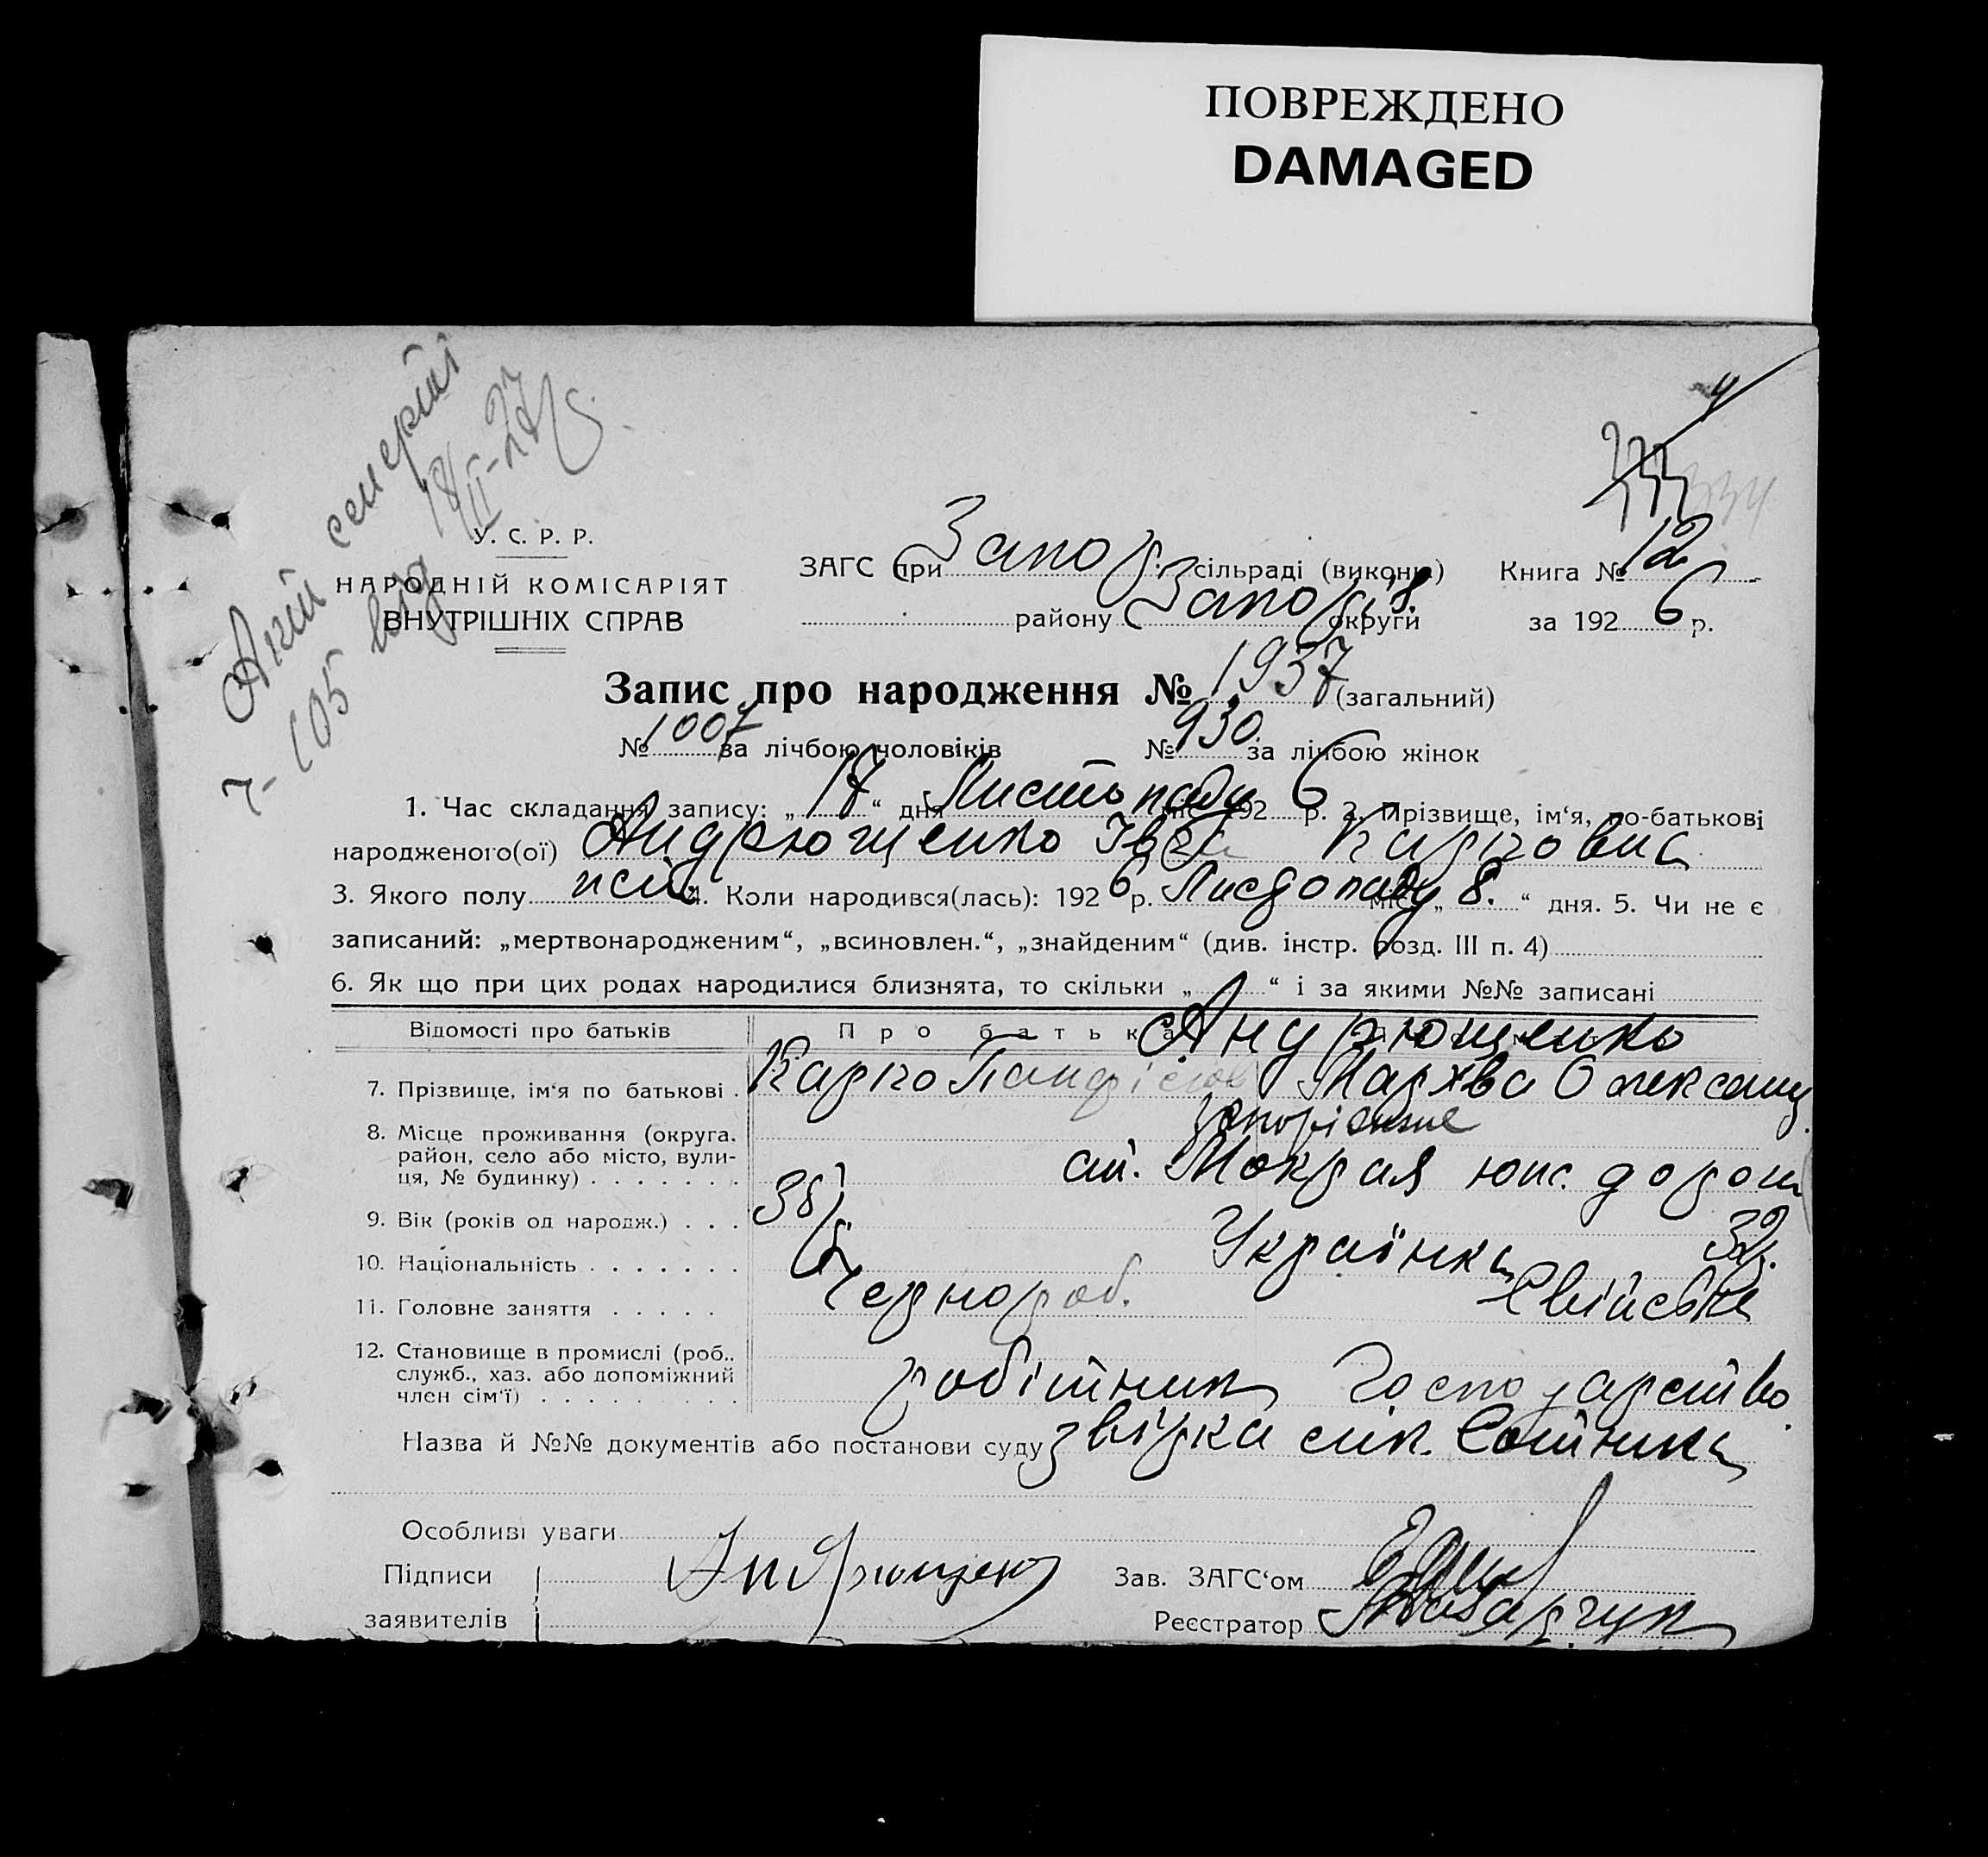 ПОВРЕЖДЕНО
DAMAGED
Акт смерті
7-105 від 18/II-27 р.
334
У. С. Р. Р.
НАРОДНІЙ КОМІСАРІЯТ
ВНУТРІШНІХ СПРАВ
ЗАГС при Запор. сільраді (виконк) Книга № 12
району Запоріж округи за 1926 р.
Запис про народження № 1937 (загальний)
№ 1007 за лічбою чоловіків № 930 за лічбою жінок
1. Час складання запису: „17“ дня Листопаду міс. 1926 р. 2. Прізвище, ім‘я, по-батькові
народженого(ої) Андрющенко Іван Карпович
3. Якого полу 4. Коли народився(лась): 1926 р. Листопаду міс. „8.“ дня. 5. Чи не є
записаний: „мертвонародженим“, „всиновлен.“, „знайденим“ (див. інстр. розд. III п. 4)
6. Як що при цих родах народилися близнята, то скільки „ “ і за якими №№ записані
Відомості про батьків Про батька
Андрющенко
7. Прізвище, ім‘я по батькові . Карпо Мархва Олександ
8. Місце проживання (округа.
район, село або місто, вули-
ця, № будинку) . . . . . . .
Запоріжжє
ст. Мокрая
9. Вік (років од народж.) . . . 38 р. 32 р.
10. Національність . . . . . . . Українка
11. Головне заняття . . . . . Чернороб. Свійське
12. Становище в промислі (роб.,
служб., хаз. або допоміжний
член сім‘ї) . . . . . . . . . робітник господарство
Назва й №№ документів або постанови суду
Особливі уваги
Підписи
заявителів Андрющенко
Зав. ЗАГС‘ом
Реєстратор